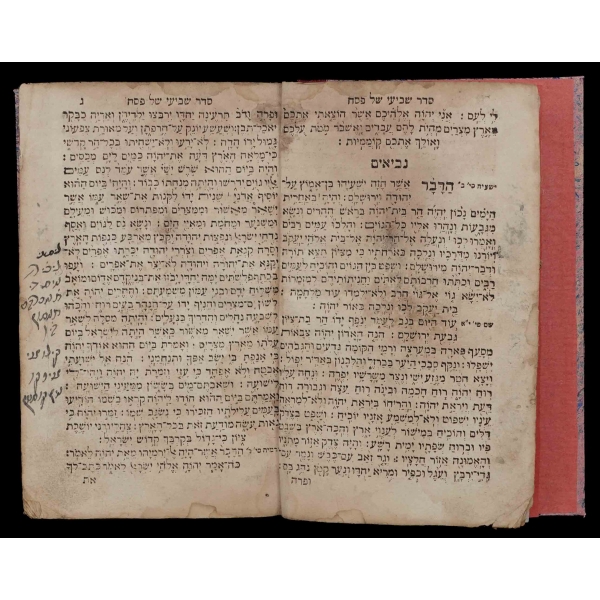 סדר שביעי של פסח
לי לעם : אני יהוה אלהיכם אשר הוצאתי אתכם
מארץ מצרים מהית להם עבדים ואשבר מטת עלכם
ואולך אתכם קוממיות :
נביאים
ישעיה סי' ב' הדבר אשר חזה ישעיהו בן אמוץ על
יהודה וירושלם : והיה באחרית
הימים נכון יהיה הר בית יהוה בראש ההרים ונשא
מגבעות ונהרו אליו כל הגוים : והלכו עמים רבים
ואמרו לכו ונעלה אל הר יהוה אל בית אלהי יעקב
ויורנו מדרכיו ונלכה בארחתיו כי מציון תצא תורה
ודבר יהוה מירושלם : ושפט בין הגוים והוכיח לעמים
רבים וכתתו חרבותם לאתים וחניתותיהם למזמרות
לא ישא גוי אל גוי חרב ולא ילמדו עוד מלחמה
בית יעקב לכו ונלכה באור יהוה :
שם סי' י"א עוד היום בנב לעמד ינפף ידו הר בת ציון
גבעת ירושלם : הנה האדון יהוה צבאות
מסעף פארה במערצה ורמי הקומה גדועים והגבהים
ישפלו : ונקף סבכי היער בברזל והלבנון באדיר יפול :
ויצא חטר מגזע ישי ונצר משרשיו יפרה : ונחה עליו
רוח יהוה רוח חכמה ובינה רוח עצה וגבורה רוח
דעת ויראת יהוה : והריחו ביראת יהוה ולא למראה
עיניו ישפוט ולא למשמע אזניו יוכיח : ושפט בצדק
דלים והוכיח במישור לענוי ארץ והכה ארץ בשבט
פיו וברוח שפתיו ימית רשע : והיה צדק אזור מתניו
והאמונה אזור חלציו : וגר זאב עם כבש ונמר עם
גדי ירבץ ועגל וכפיר ומריא יחדו ונער קטן נהג בם :
ופרה
סדר שביעי של פסח ג
ופרה ודב תרעינה יחדו ירבצו ילדיהן ואריה כבקר
יאכל תבן : ושעשע יונק על חר פתן ועל מאורת צפעוני
גמול ידו הדה : לא ירעו ולא ישחיתו בכל הר קדשי
כי מלאה הארץ דעה את יהוה כמים לים מכסים :
והיה ביום ההוא שרש ישי אשר עמד לנס עמים
אליו גוים ידרשו והיתה מנחתו כבוד : והיה ביום ההוא
יוסיף אדני שנית ידו לקנות את שאר עמו אשר
ישאר מאשור וממצרים ומפתרוס ומכוש ומעילם
ומשנער ומחמת ומאיי הים : ונשא נס לגוים ואסף
נדחי ישראל ונפצות יהודה יקבץ מארבע כנפות הארץ :
וסרה קנאת אפרים וצררי יהודה יכרתו אפרים לא
יקנא את יהודה ויהודה לא יצר את אפרים : ועפו
בכתף פלשתים ימה יחדו יבזו את בני קדם אדום ומואב
משלוח ידם ובני עמון משמעתם : והחרים יהוה את
לשון ים מצרים והניף ידו על הנהר בעים רוחו והכהו
לשבעה נחלים והדריך בנעלים : והיתה מסלה לשאר
עמו אשר ישאר מאשור כאשר היתה לישראל ביום
עלתו מארץ מצרים : ואמרת ביום ההוא אודך יהוה
כי אנפת בי ישב אפך ותנחמני : הנה אל ישועתי
אבטח ולא אפחד כי עזי וזמרת יה יהוה ויהי לי
לישועה : ושאבתם מים בששון ממעיני הישועה :
ואמרתם ביום ההוא הודו ליהוה קראו בשמו הודיעו
בעמים עלילתיו הזכירו כי נשגב שמו : זמרו יהוה כי
גאות עשה מודעת זאת בכל הארץ : צהלי ורני יושבת
ציון כי גדול בקרבך קדוש ישראל :
הדבר אשר היה אל ירמיהו מאת יהוה לאמר :
כה אמר יהוה אלהי ישראל לאמר כתב לך
את